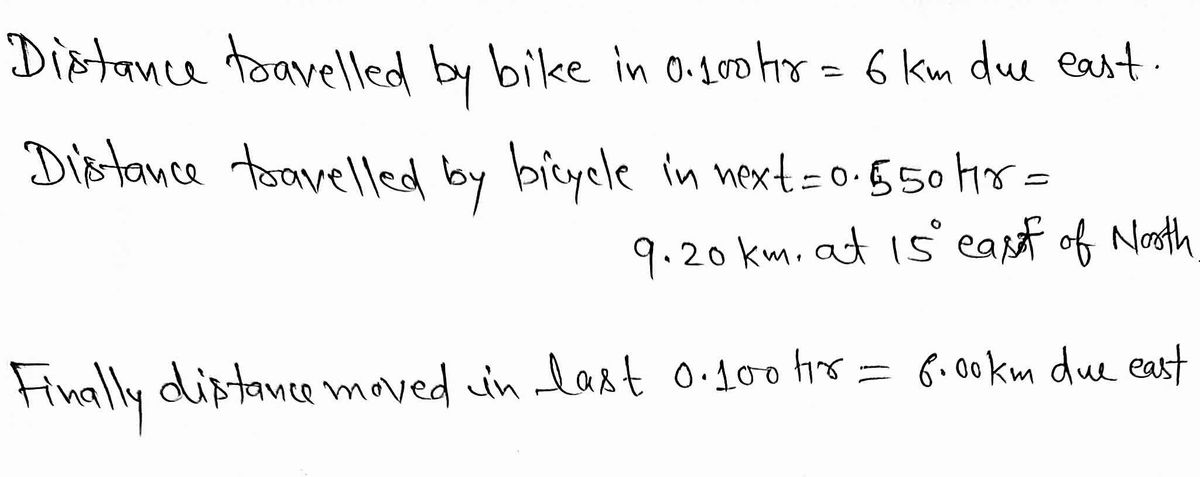 Distance travelled by bike in 0.100 hr = 6 km due east.
Distance travelled by bicycle in next = 0.550 hr =
9.20 km. at 15° east of North.
Finally distance moved in last 0.100 hr = 6.00 km due east